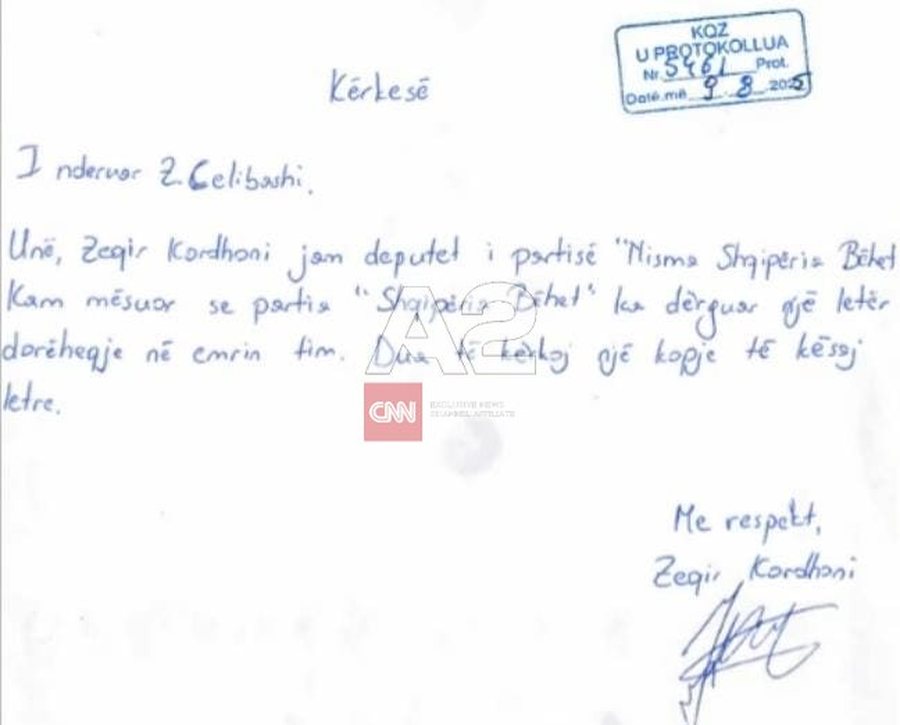 KQZ
U PROTOKOLLUA
Nr. 5461 Prot.
Datë.më 9 8 2025
Kërkesë
I nderuar Z. Celibashi.
Unë, Zeqir Kordhoni jam deputet i partisë "Nisma Shqipëria Bëhet
Kam mësuar se partia "Shqipëria Bëhet" ka dërguar një letër
dorëheqje në emrin tim. Dua të kërkoj një kopje të kësaj
letre.
A2
CNN
EXCLUSIVE NEWS
CHANNEL AFFILIATE
Me respekt,
Zeqir Kordhoni